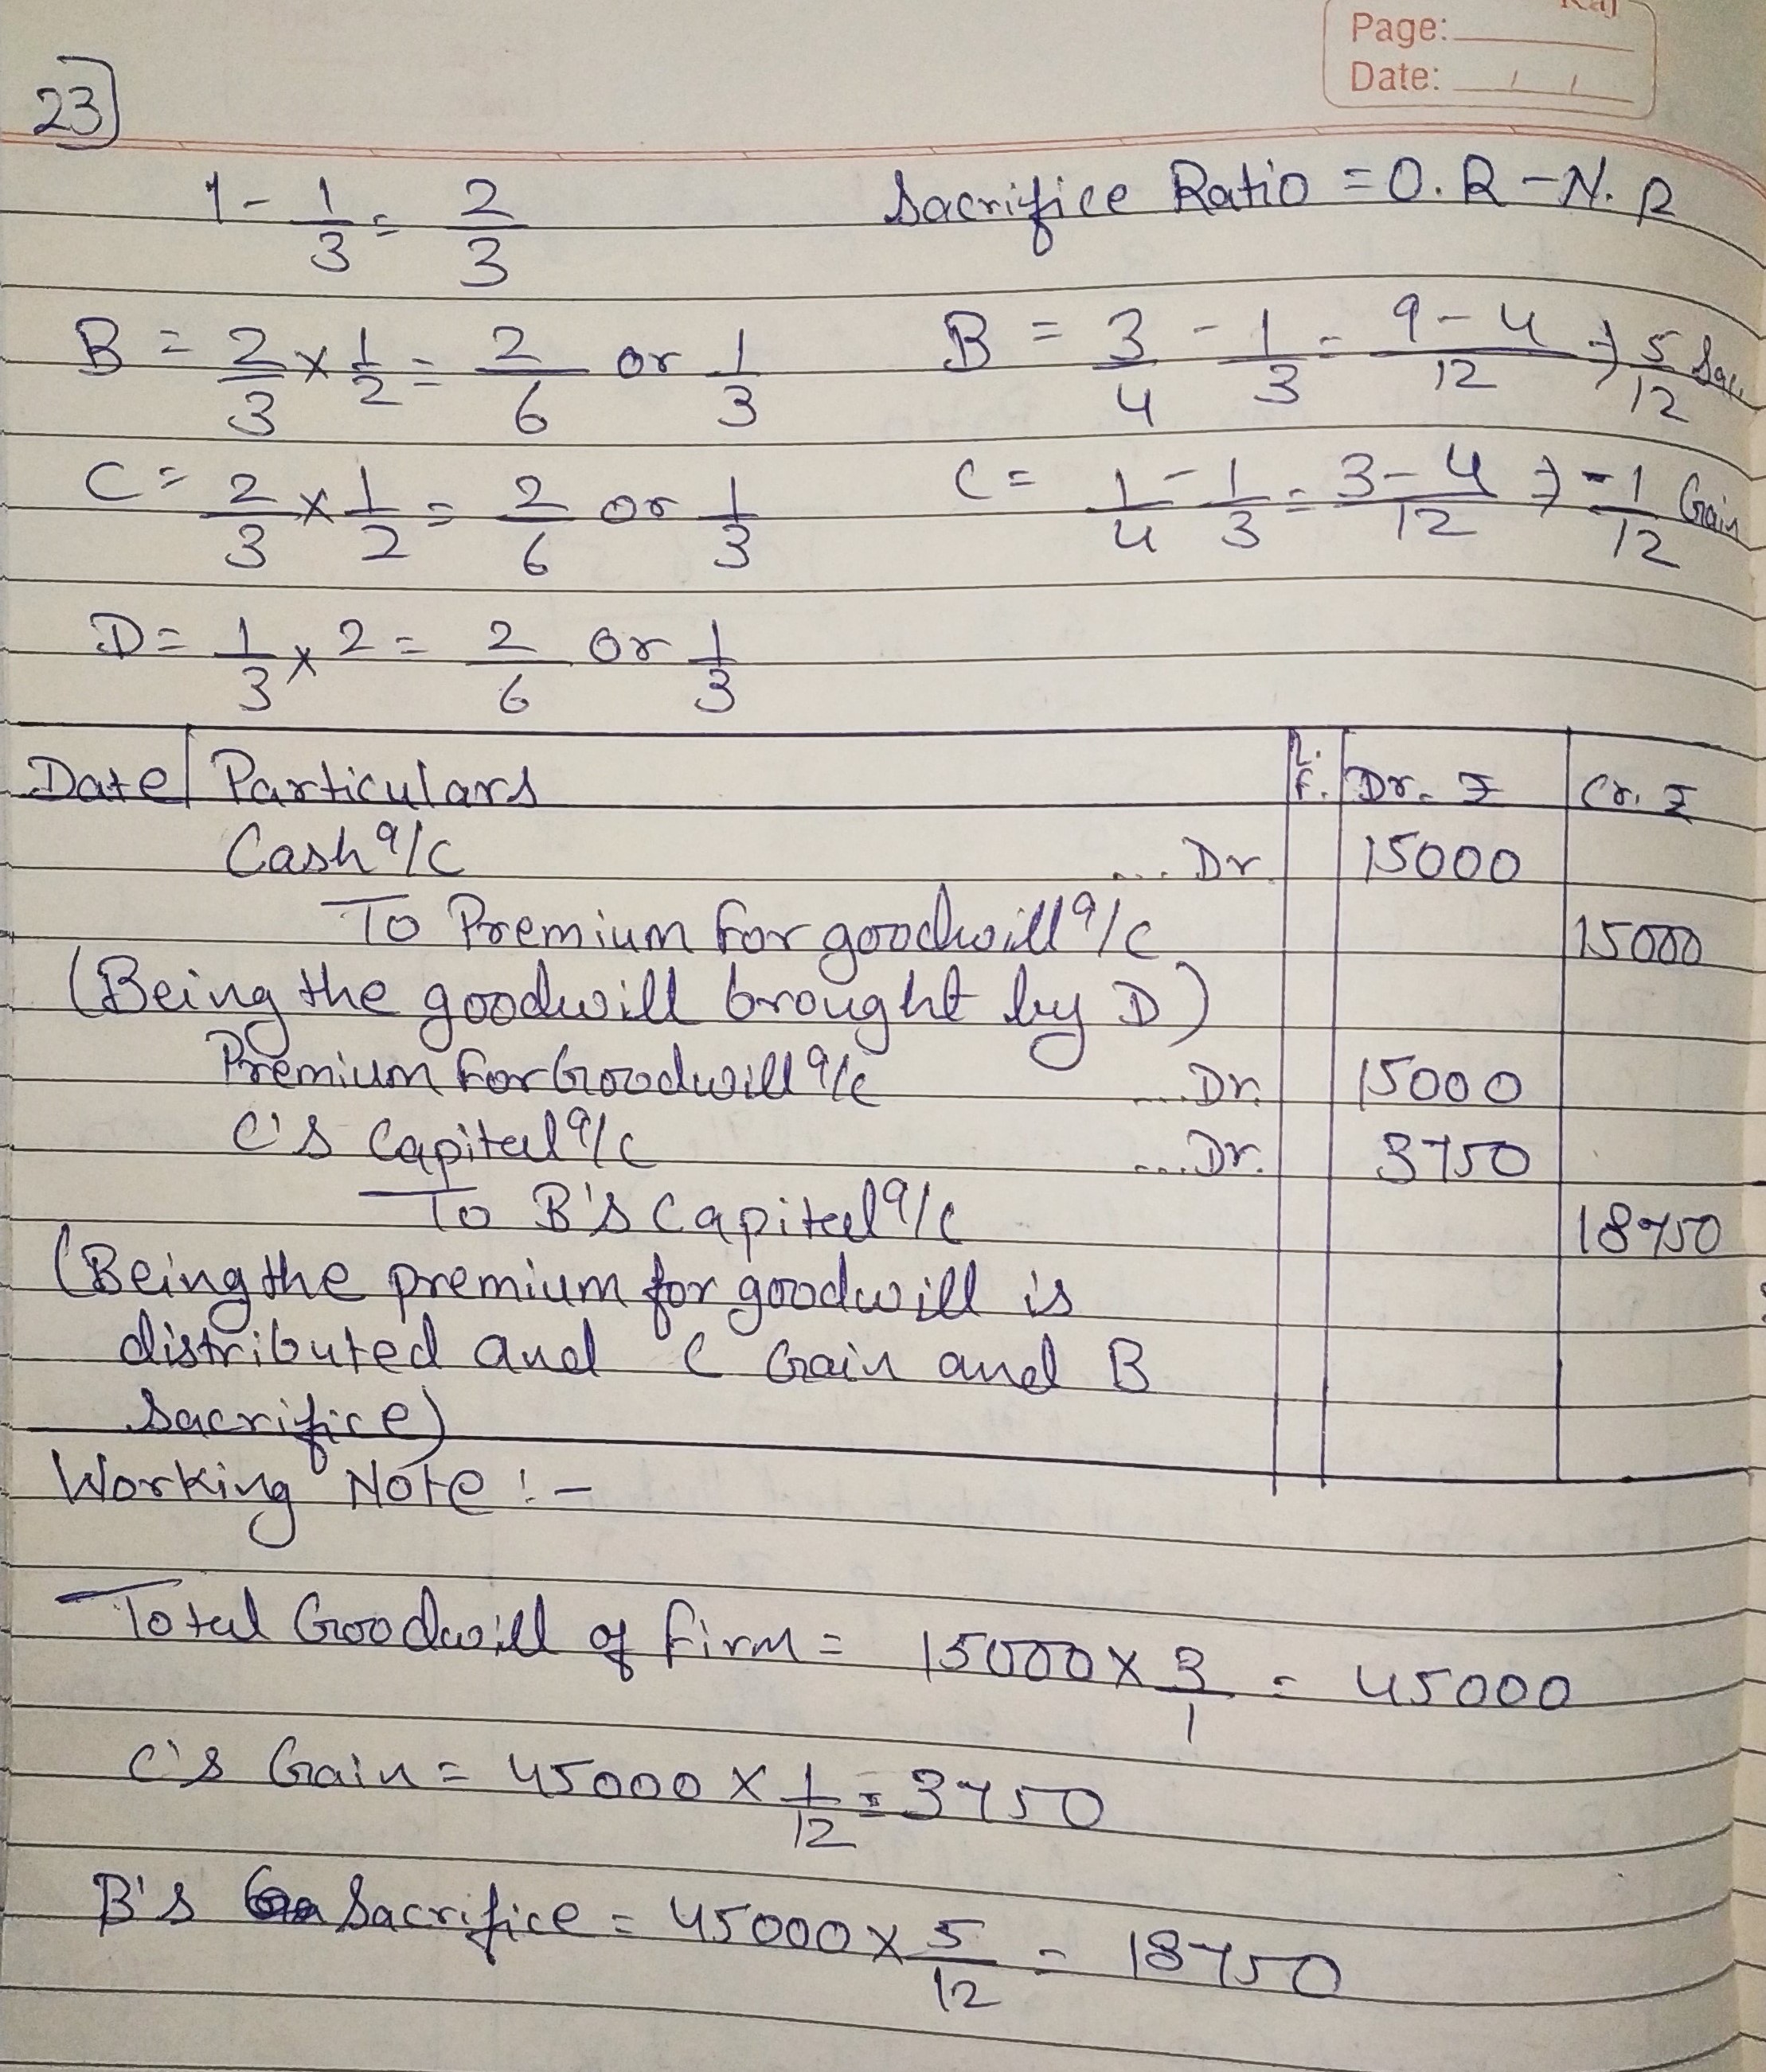 Raj
Page:
Date: / /
23]
1 - 1/3 = 2/3
Sacrifice Ratio = O.R - N.R
B = 2/3 x 1/2 = 2/6 or 1/3
B = 3/4 - 1/3 = 9-4/12 ⇒ 5/12 Sac.
C = 2/3 x 1/2 = 2/6 or 1/3
C = 1/4 - 1/3 = 3-4/12 ⇒ -1/12 Gain
D = 1/3 x 2 = 2/6 or 1/3
Date Particulars L.F. Dr. ₹ Cr. ₹
Cash a/c ... Dr. 15000
To Premium for goodwill a/c 15000
(Being the goodwill brought by D)
Premium for Goodwill a/c ... Dr. 15000
C's Capital a/c ... Dr. 3750
To B's Capital a/c 18750
(Being the premium for goodwill is
distributed and C Gain and B
Sacrifice)
Working Note :-
Total Goodwill of firm = 15000 x 3/1 = 45000
C's Gain = 45000 x 1/12 = 3750
B's Sacrifice = 45000 x 5/12 = 18750